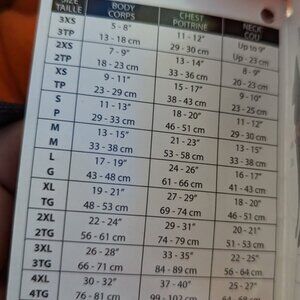 SIZE BODY CHEST NECK
TAILLE CORPS POITRINE COU
3XS 5 - 8" 11 - 12" Up to 9"
3TP 13 - 18 cm 29 - 30 cm Up - 23 cm
2XS 7 - 9" 13 - 14" 8 - 9"
2TP 18 - 23 cm 33 - 36 cm 20 - 23 cm
XS 9 - 11" 15 - 17" 9 - 10"
TP 23 - 29 cm 38 - 43 cm 23 - 25 cm
S 11 - 13" 18 - 20" 11 - 12"
P 29 - 33 cm 46 - 51 cm 29 - 30 cm
M 13 - 15" 21 - 23" 13 - 15"
M 33 - 38 cm 53 - 58 cm 33 - 38 cm
L 17 - 19" 24 - 26" 16 - 17"
G 43 - 48 cm 61 - 66 cm 41 - 43 cm
XL 19 - 21" 27 - 29" 18 - 19"
TG 48 - 53 cm 69 - 74 cm 46 - 48 cm
2XL 22 - 24" 29 - 31" 20 - 21"
2TG 56 - 61 cm 74 - 79 cm 51 - 53 cm
3XL 26 - 28" 33 - 35" 22 - 25"
3TG 66 - 71 cm 84 - 89 cm 56 - 64 cm
4XL 30 - 32" 37 - 40" 25 - 27"
4TG 76 - 81 cm 99 - 102 cm